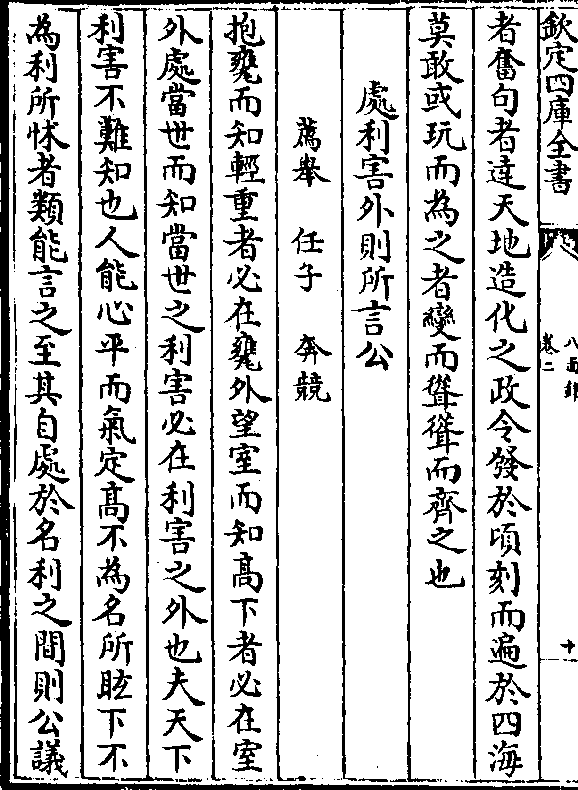 欽定四庫全書
八面鋒
卷二
十
者奮句者達天地造化之政令發於頃刻而遍於四海
莫敢或玩而為之者變而聳聳而齊之也
處利害外則所言公
薦舉 任子 奔競
抱甕而知輕重者必在甕外望室而知高下者必在室
外處當世而知當世之利害必在利害之外也夫天下
利害不難知也人能心平而氣定高不為名所眩下不
為利所怵者類能言之至其自處於名利之間則公議